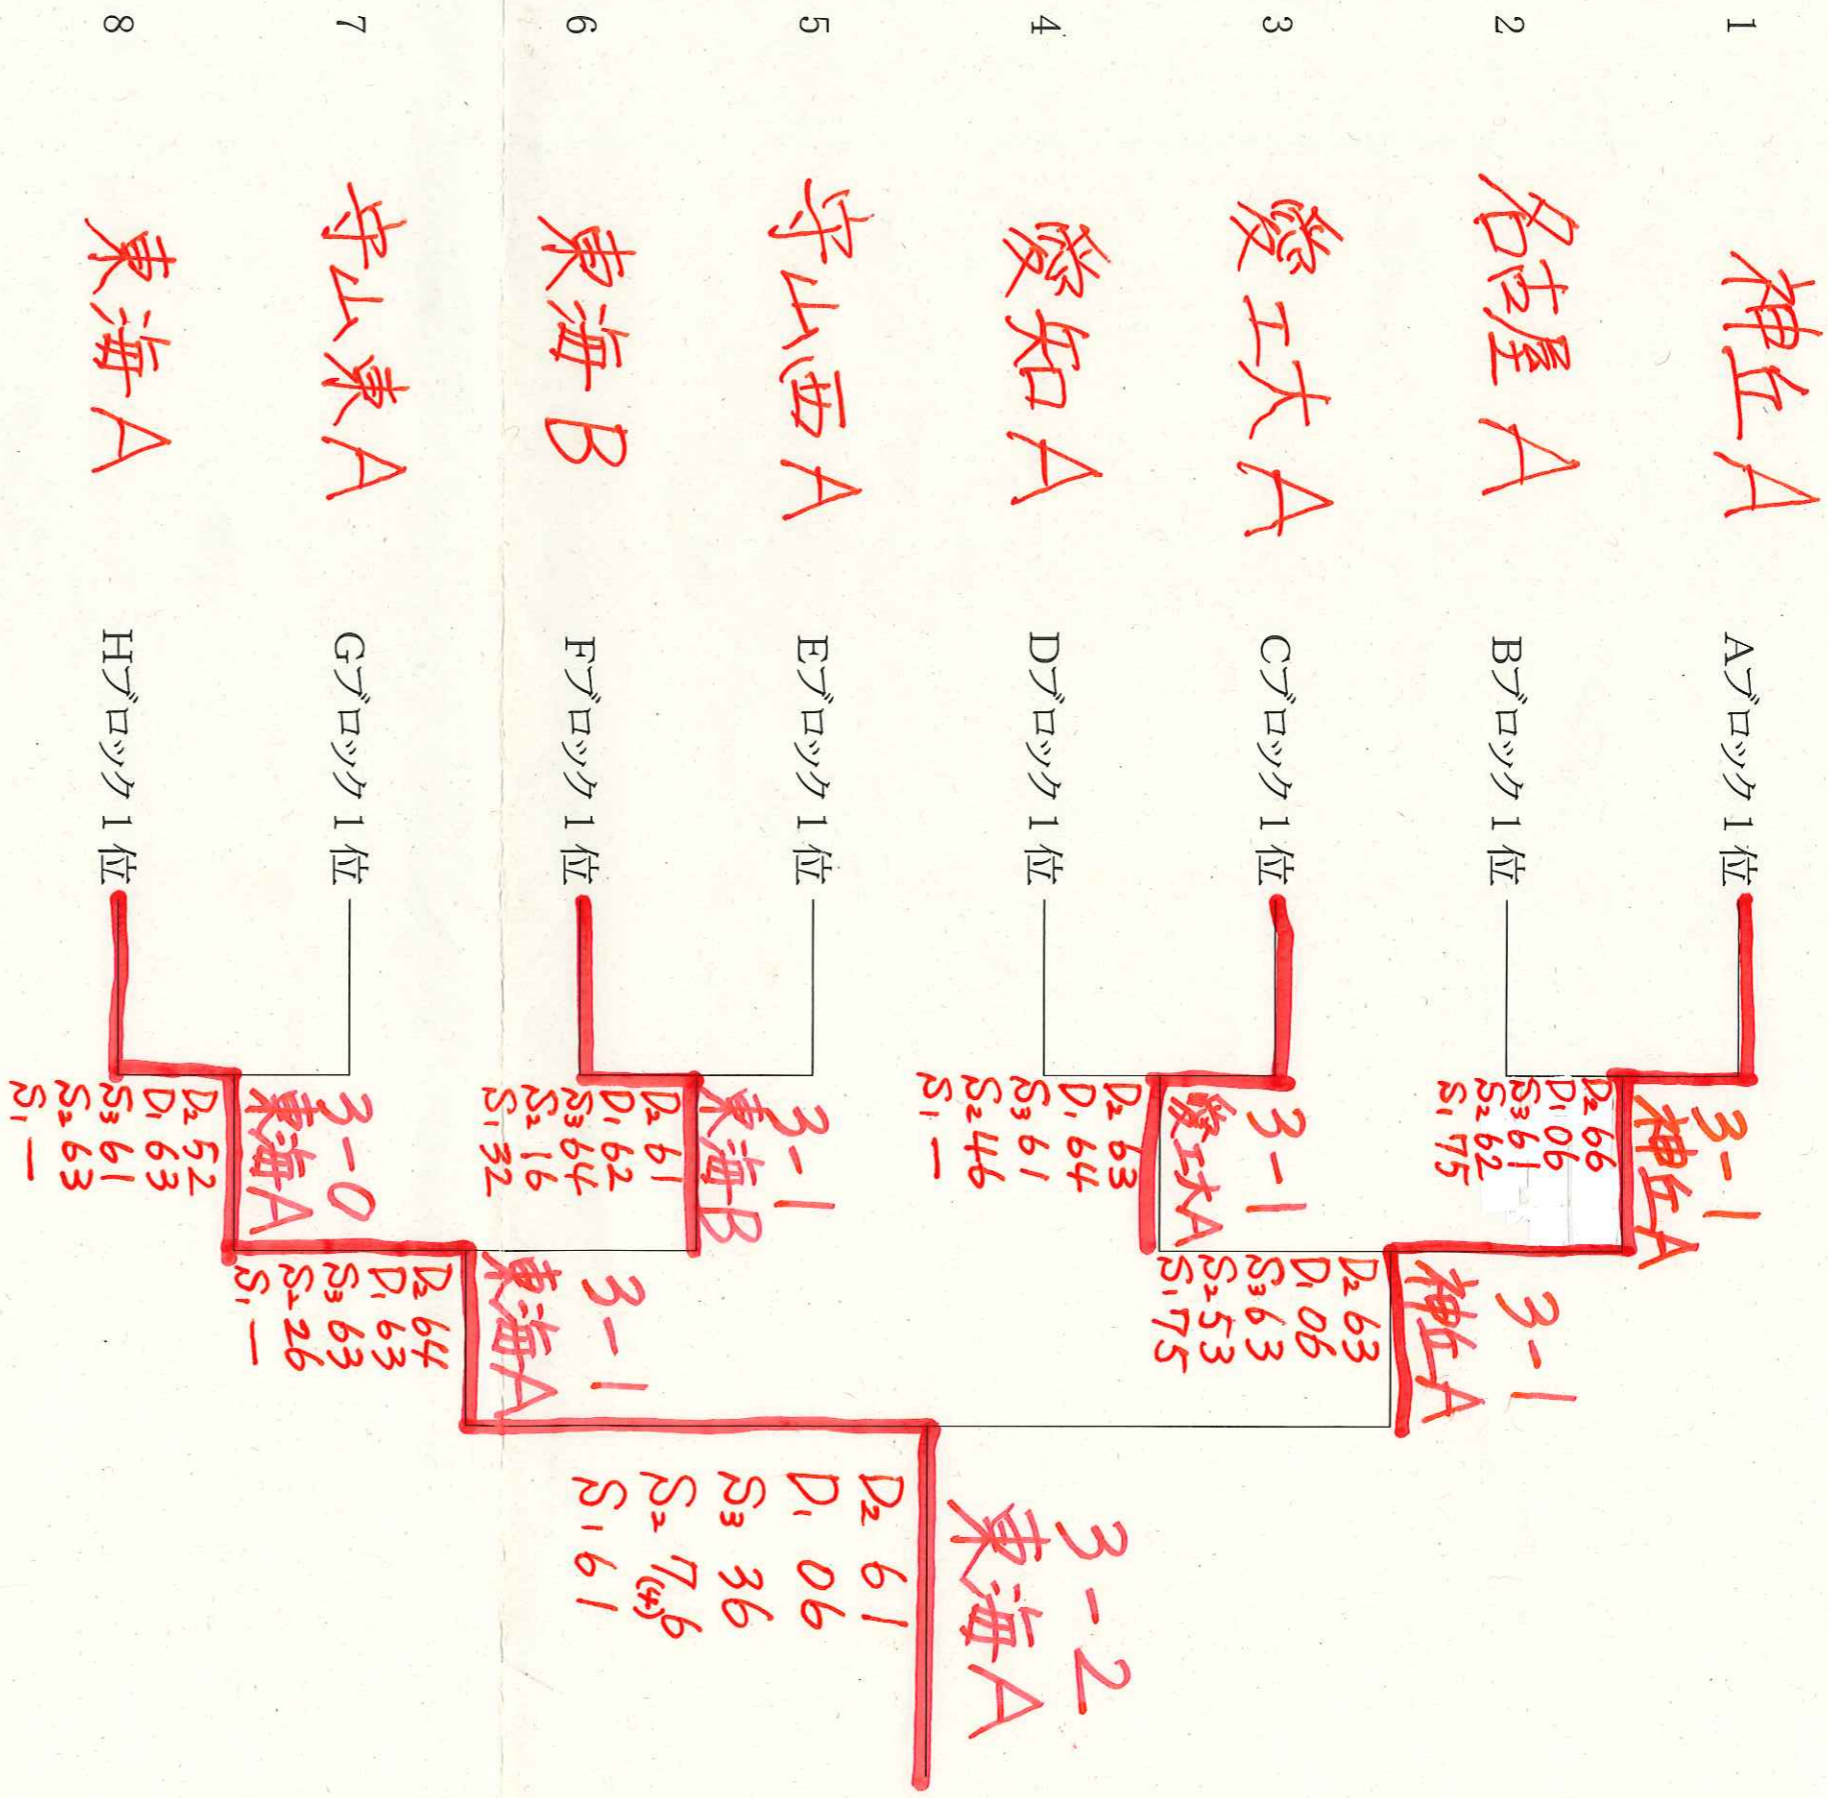 1 神丘A Aブロック1位
2 名古屋A Bブロック1位
3 愛工大A Cブロック1位
4 愛知A Dブロック1位
5 守山西A Eブロック1位
6 東海B Fブロック1位
7 守山東A Gブロック1位
8 東海A Hブロック1位
3-1
神丘A
D2 66
D1 06
S3 61
S2 62
S1 75
3-1
愛工大A
D2 63
D1 64
S3 61
S2 46
S1 —
3-1
東海B
D2 61
D1 62
S3 64
S2 16
S1 32
3-0
東海A
D2 52
D1 63
S3 61
S2 63
S1 —
3-1
神丘A
D2 63
D1 06
S3 63
S2 53
S1 75
3-1
東海A
D2 64
D1 63
S3 63
S2 26
S1 —
3-2
東海A
D2 61
D1 06
S3 36
S2 7(4)6
S1 61